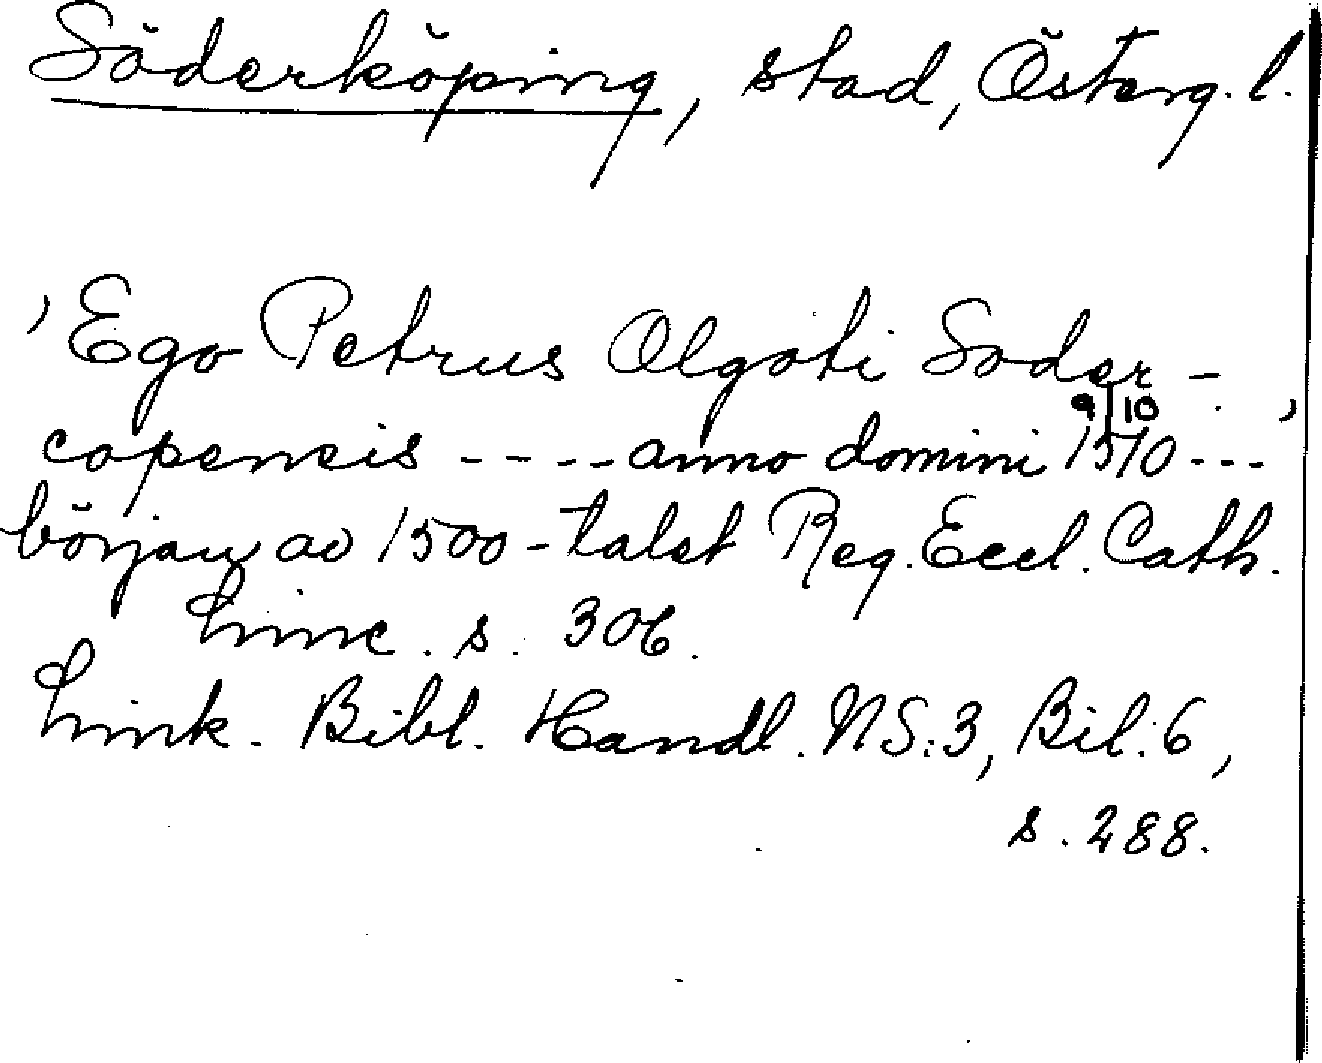 Söderköping, stad, Österg. l.
'Ego Petrus Olgoti Soder-
9/10
copensis ---- anno domini 1510 ---'
början av 1500-talet Reg. Eccl. Cath.
Linc. s. 306.
Link. Bibl. Handl. NS:3, Bil. 6,
s. 288.